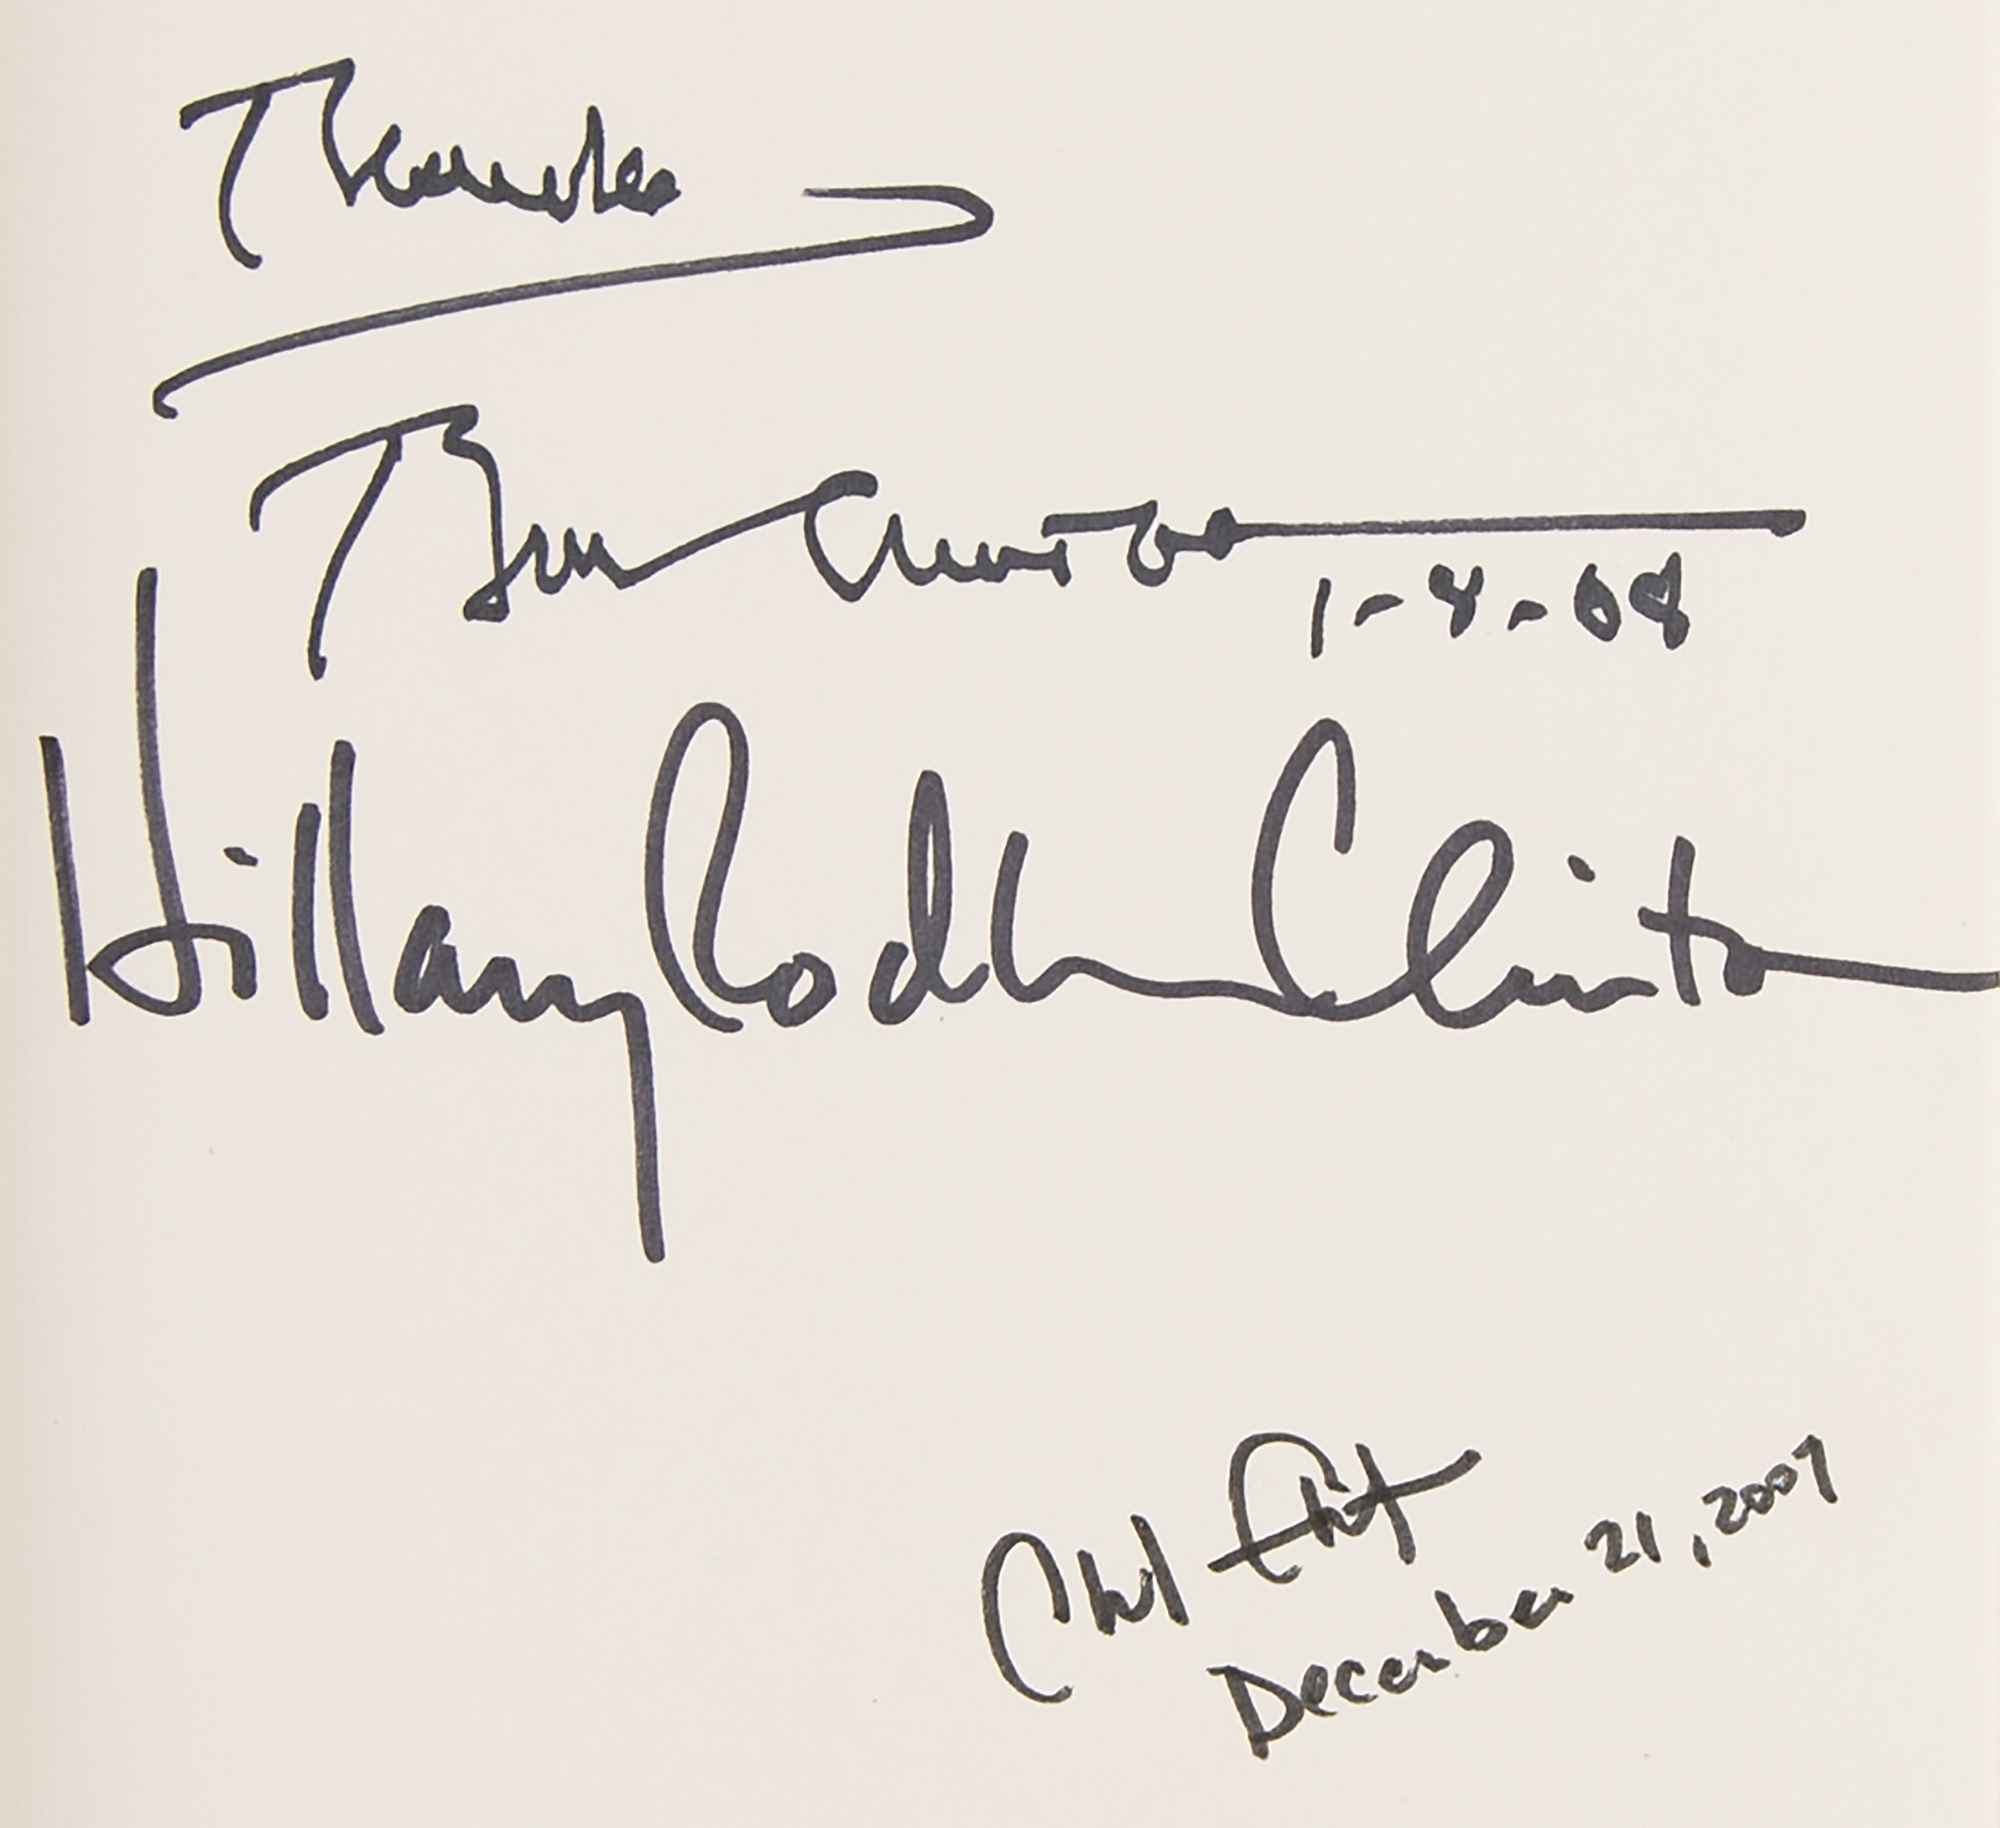 Thanks
Bill Clinton
1-4-08
Hillary Rodham Clinton
December 21, 2007